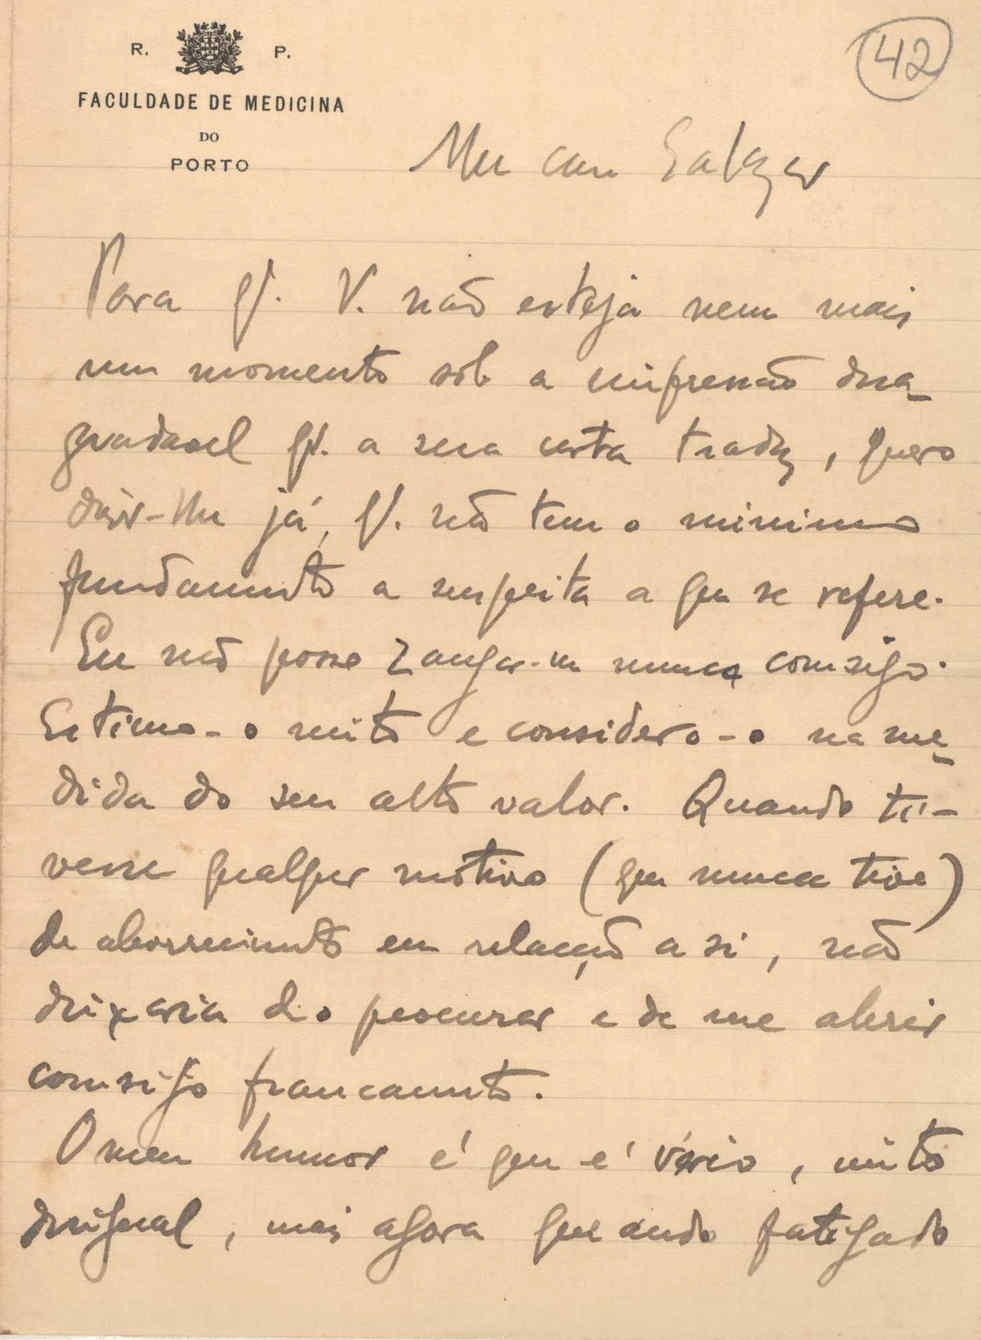 R. P.
42
FACULDADE DE MEDICINA
DO
PORTO
Meu caro Salazar
Para q. V. não esteja nem mais
um momento sob a impressão desa-
gradavel q. a sua carta traduz, quero
dizer-lhe já, q. não tem o minimo
fundamento a suspeita a que se refere.
Eu não posso zangar-me nunca comsigo.
Estimo-o muito e considero-o na me-
dida do seu alto valor. Quando ti-
vesse qualquer motivo (que nunca tive)
de aborrecimento em relação a si, não
deixaria de o procurar e de me abrir
comsigo francamente.
O meu humor é que é vário, muito
desigual, mais agora que ando fatigado